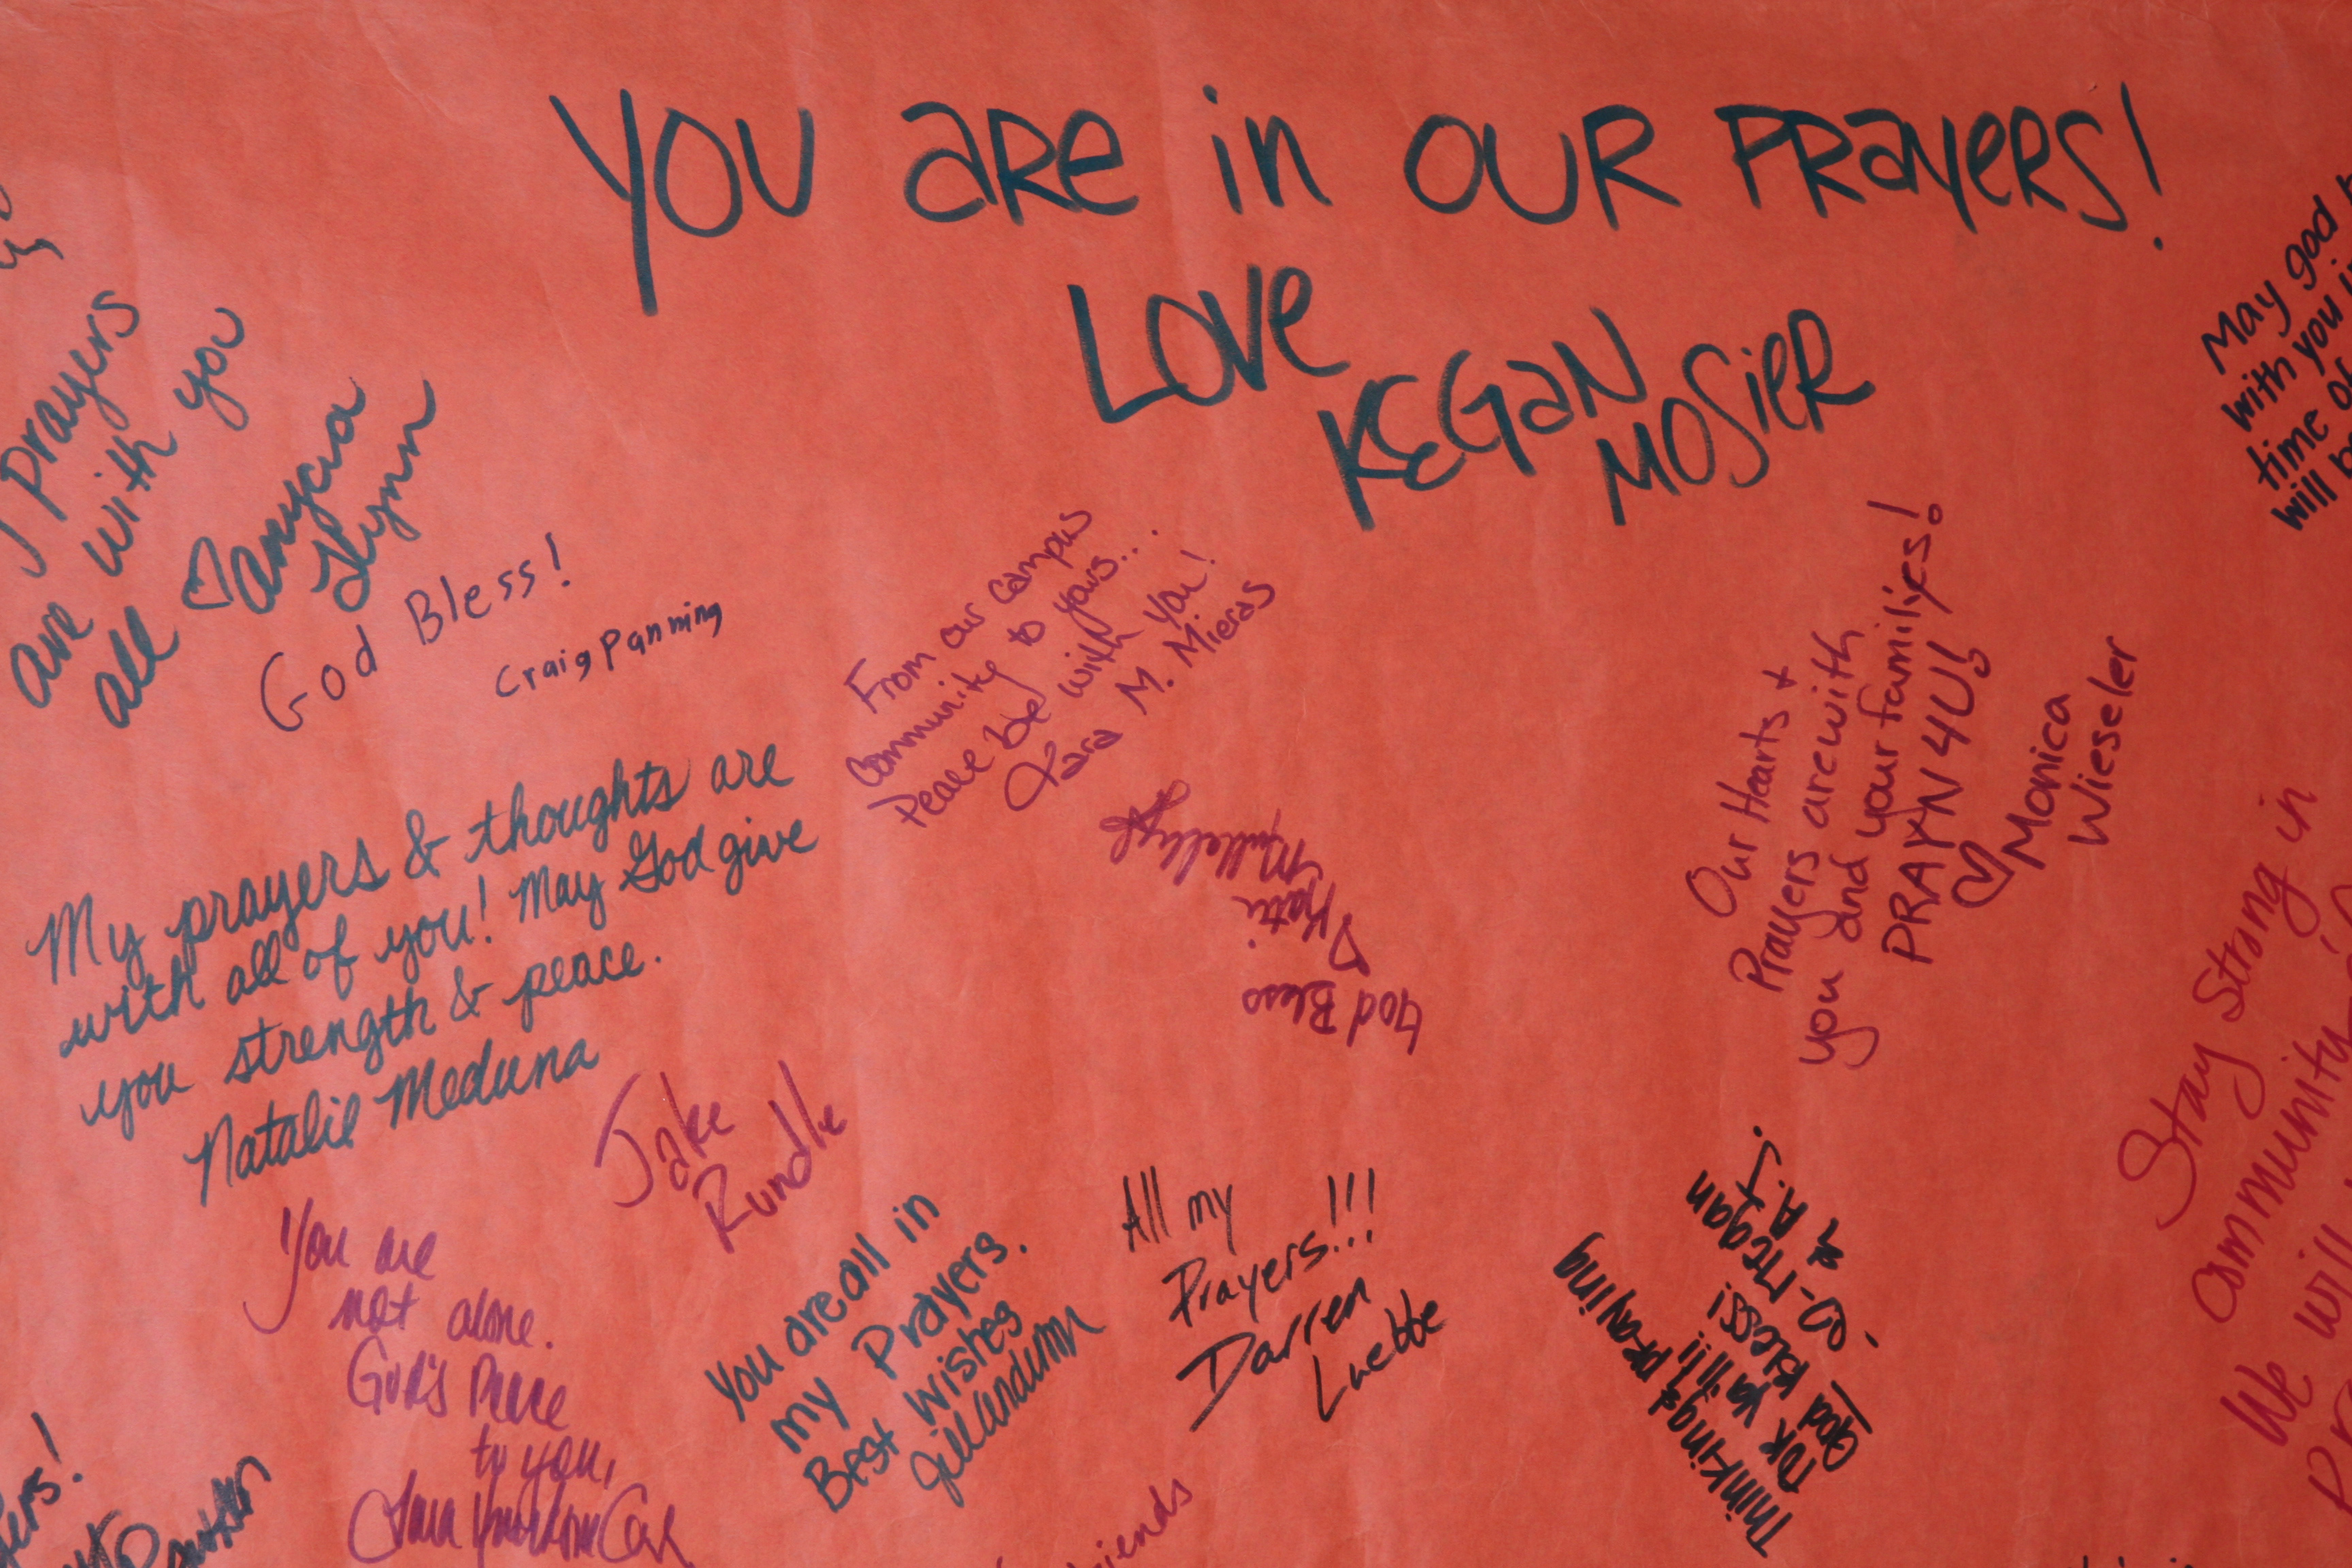 YOU ARE in OUR PRAYERS!
LOVE
KEGAN
MOSIER
Prayers
are with you
all ♡ amycia
Lynn
God Bless!
Craig Panning
From our campus
Community to yours...
Peace be with you!
Kara M. Mieras
God Bless
Kati
My prayers & thoughts are
with all of you! May God give
you strength & peace.
Natalie Meduna
Jake
Rundle
Our Hearts +
Prayers are with
you and your families!
PRAYN 4U!
♡ Monica
Wieseler
May god
with you in
time of
will
Stay Strong in
Community
We will
You are
not alone.
God's Peace
to you,
You are all in
my Prayers.
Best Wishes
All my
Prayers!!!
Darren
Luebbe
Thinking & praying
God Bless!
Megan
friends